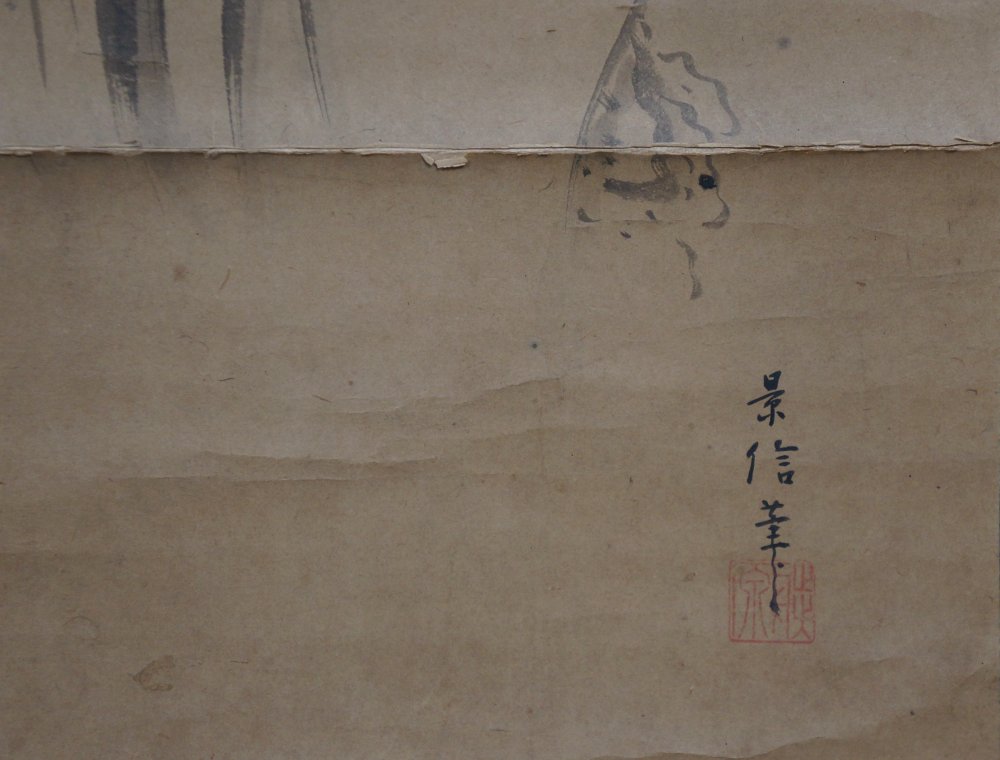 景信筆